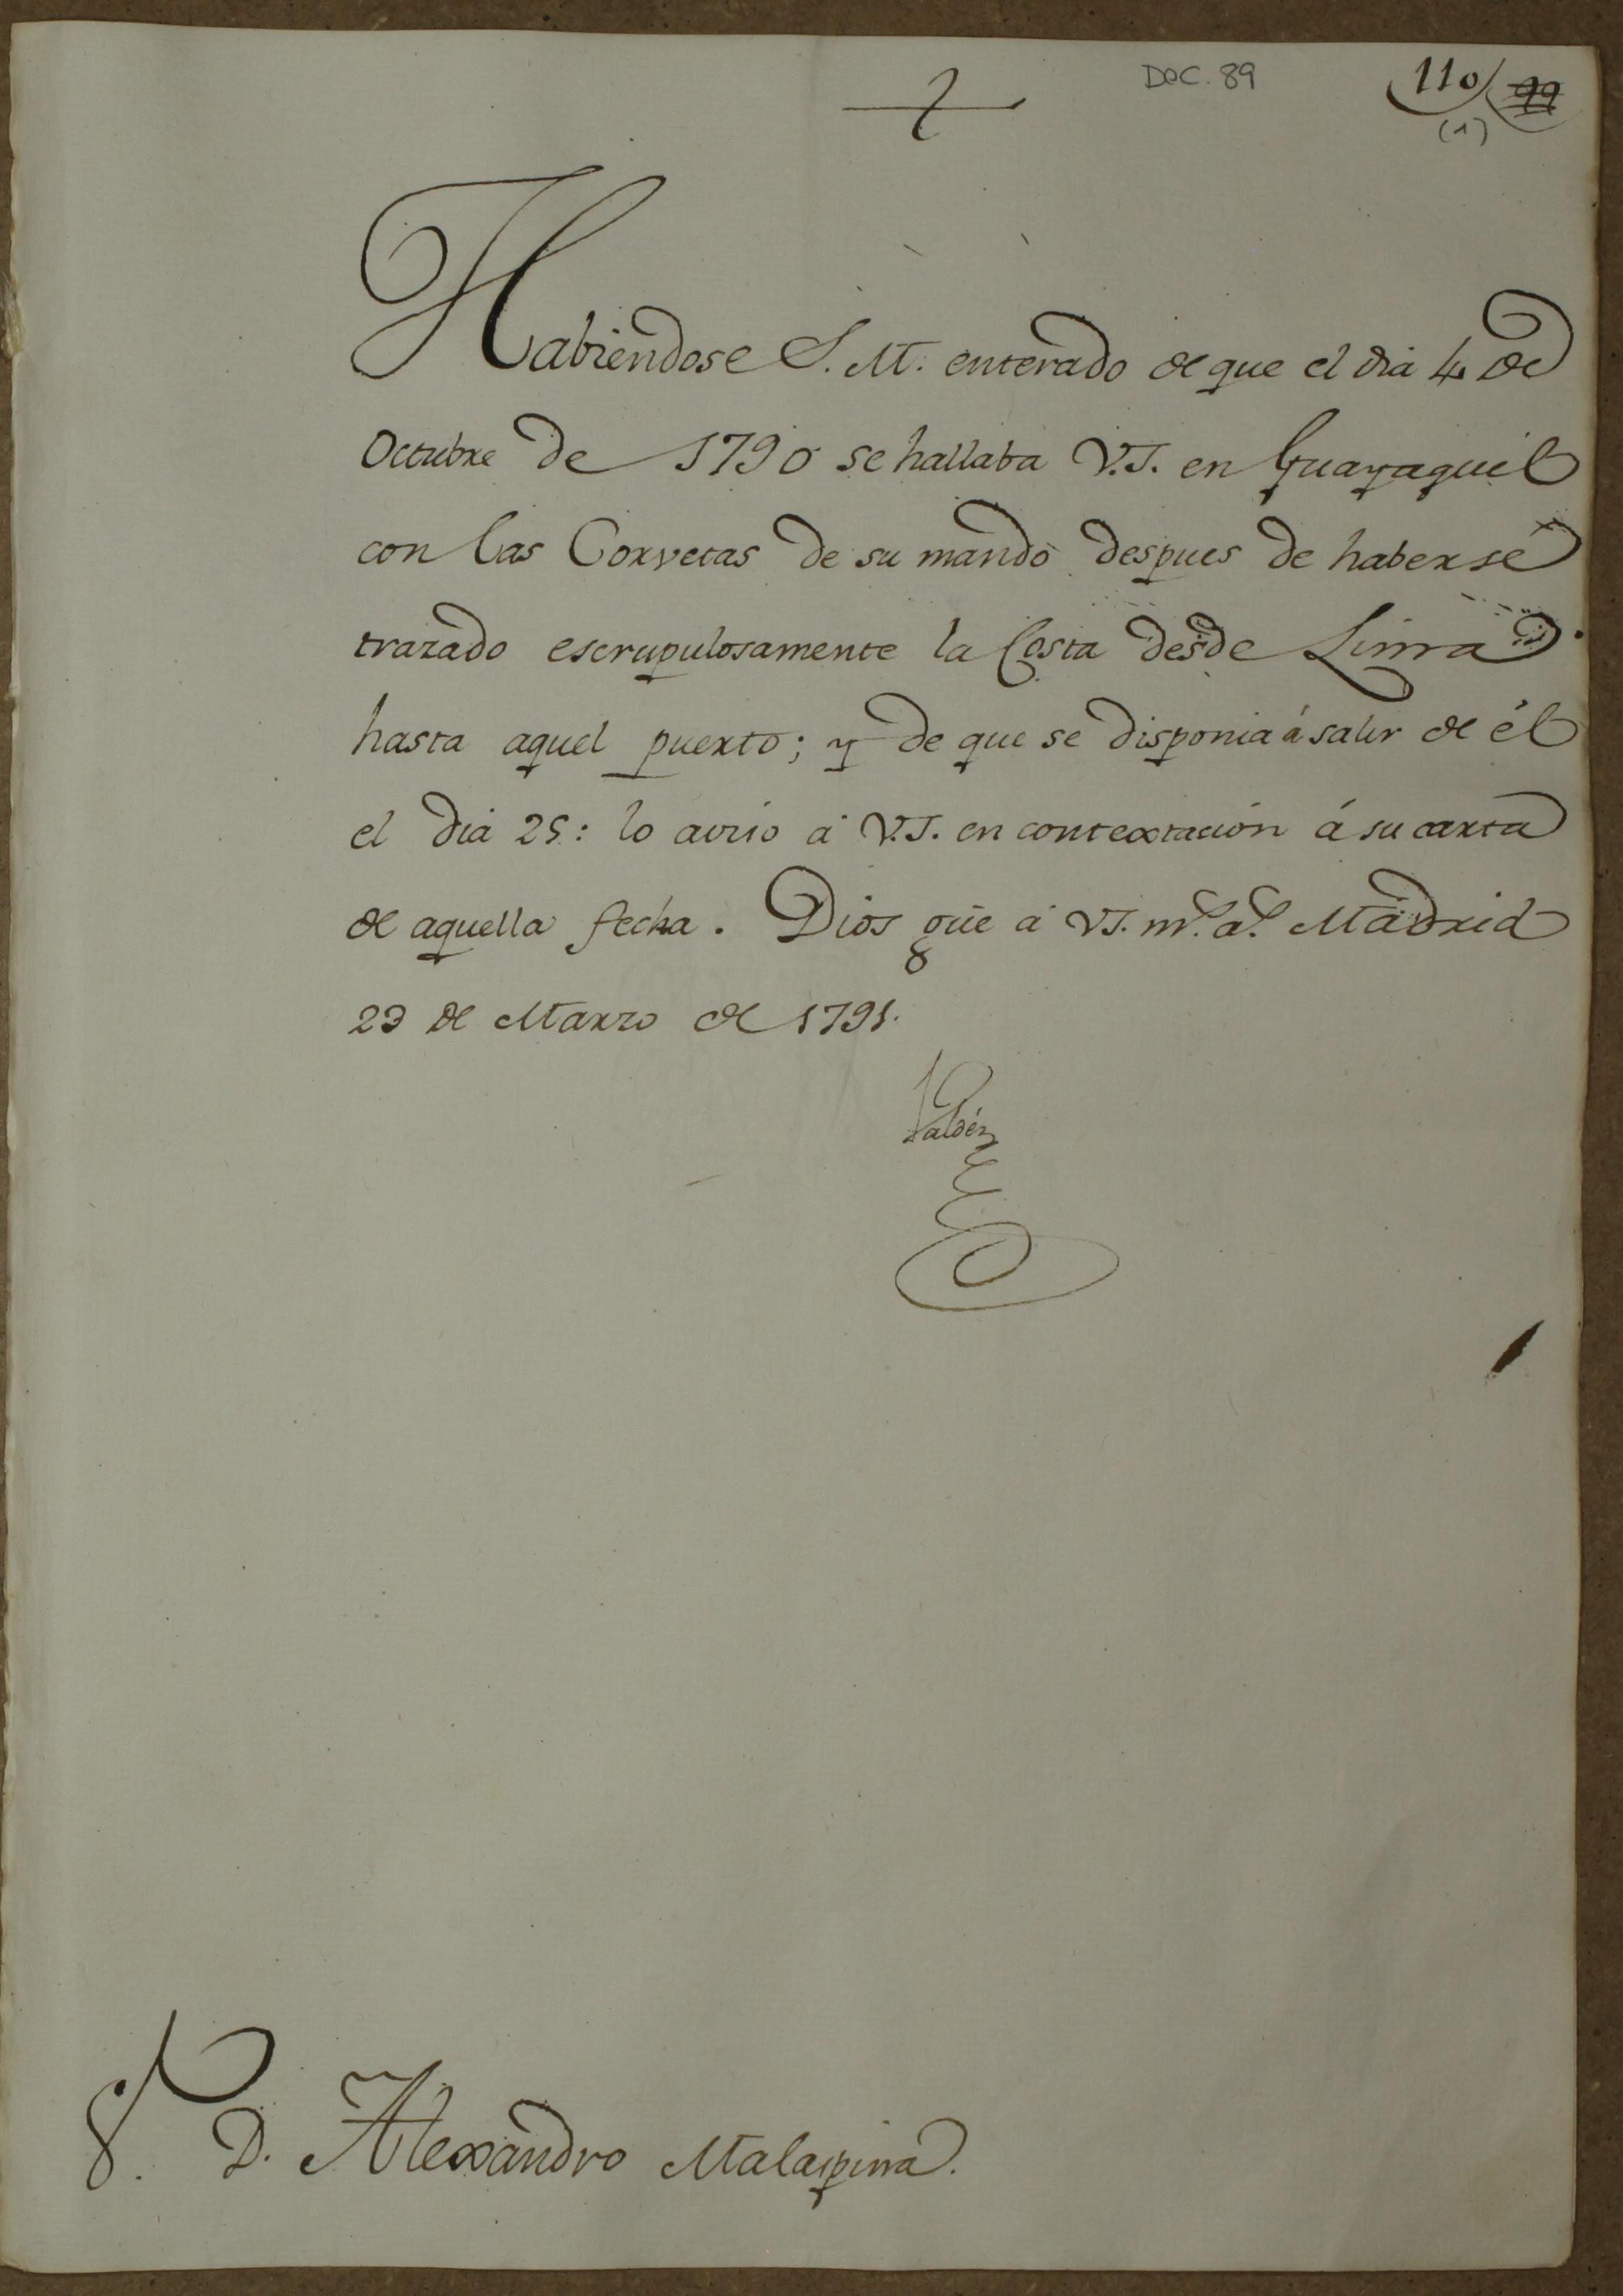 DOC. 89
110 99
(1)
Habiendose S. M. enterado de que el dia 4 de
Octubre de 1790 se hallaba V.S. en Guayaquil
con las Corvetas de su mando despues de haberse
trazado escrupulosamente la Costa desde Lima
hasta aquel puerto; y de que se disponia á salir de él
el dia 25: lo aviso á V.S. en contextacion á su carta
de aquella fecha. Dios gue á V.S. ms. as. Madrid
23 de Marzo de 1791.
Valdés
S. D. Alexandro Malaspina.